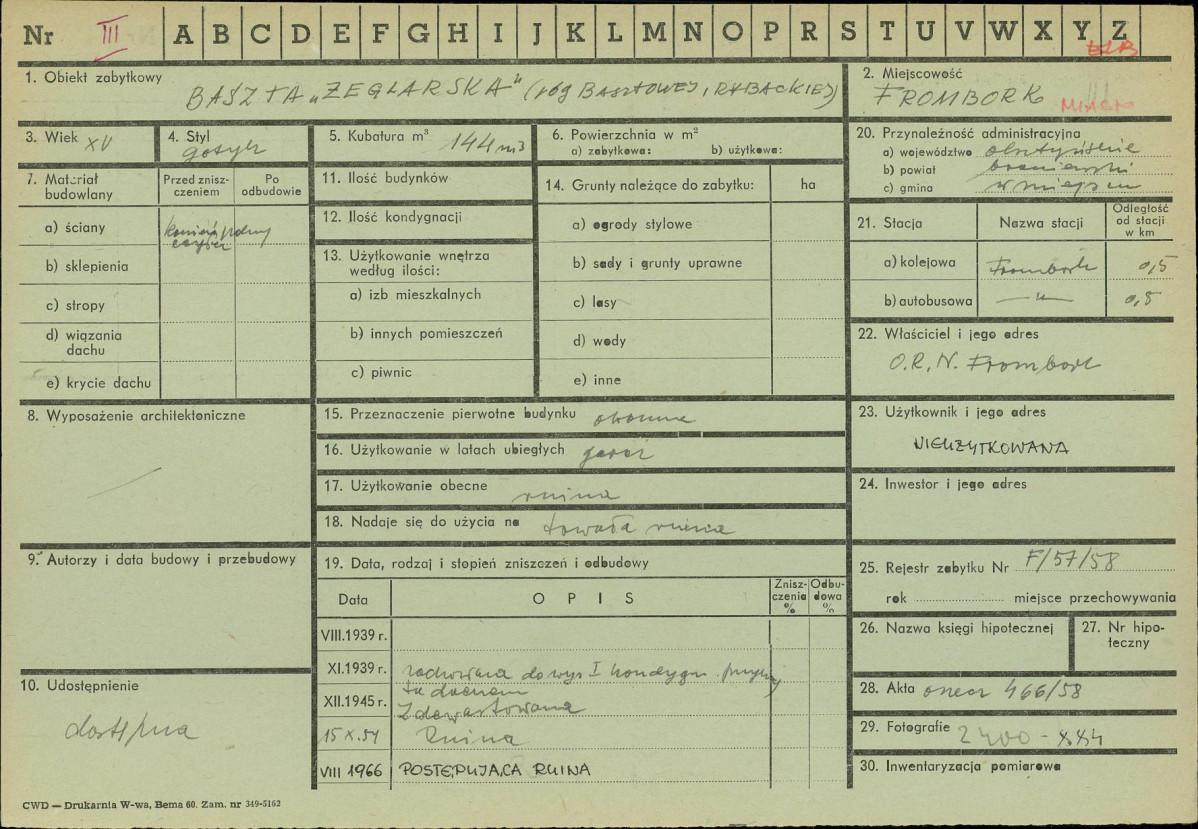 Nr III A B C D E F G H I J K L M N O P R S T U V W X Y Z
1. Obiekt zabytkowy
BASZTA „ŻEGLARSKA" (róg BASZTOWEJ i RYBACKIEJ)
2. Miejscowość
FROMBORK MIASTO
3. Wiek XV
4. Styl
gotyk
5. Kubatura m³ 144 m3
6. Powierzchnia w m²
a) zabytkowa: b) użytkowa:
7. Materiał budowlany
Przed zniszczeniem
Po odbudowie
a) ściany kamień polny
cegła
b) sklepienia
c) stropy
d) wiązania dachu
e) krycie dachu
8. Wyposażenie architektoniczne
9. Autorzy i data budowy i przebudowy
10. Udostępnienie
dostępna
11. Ilość budynków
12. Ilość kondygnacji
13. Użytkowanie wnętrza według ilości:
a) izb mieszkalnych
b) innych pomieszczeń
c) piwnic
14. Grunty należące do zabytku: ha
a) ogrody stylowe
b) sady i grunty uprawne
c) lasy
d) wody
e) inne
15. Przeznaczenie pierwotne budynku obronne
16. Użytkowanie w latach ubiegłych
17. Użytkowanie obecne ruina
18. Nadaje się do użycia na trwała ruina
19. Data, rodzaj i stopień zniszczeń i odbudowy
Data OPIS Zniszczenia % Odbudowa %
VIII.1939 r.
XI.1939 r. zachowana do wys I kondygn. przykryta dachem
XII.1945 r. Zdewastowana
15 X.57 Ruina
VIII 1966 POSTĘPUJĄCA RUINA
20. Przynależność administracyjna
a) województwo olsztyńskie
b) powiat braniewski
c) gmina w miejscu
21. Stacja Nazwa stacji Odległość od stacji w km
a) kolejowa Frombork 0,5
b) autobusowa —„— 0,5
22. Właściciel i jego adres
O.R.N. Frombork
23. Użytkownik i jego adres
NIEUŻYTKOWANA
24. Inwestor i jego adres
25. Rejestr zabytku Nr F/57/58
rok miejsce przechowywania
26. Nazwa księgi hipotecznej
27. Nr hipoteczny
28. Akta 466/58
29. Fotografie
30. Inwentaryzacja pomiarowa
CWD — Drukarnia W-wa, Bema 60. Zam. nr 349-5162